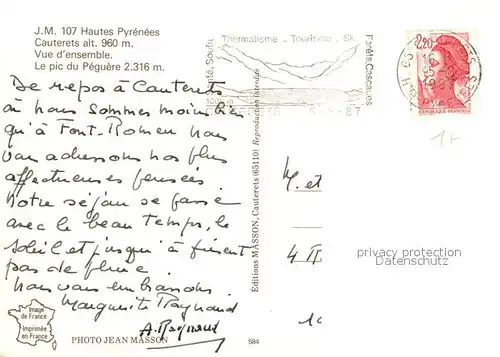 J.M. 107 Hautes Pyrénées
Cauterets alt. 960 m.
Vue d'ensemble.
Le pic du Péguère 2.316 m.
Thermalisme _ Tourisme _ Ski
Forêts, Cascades
2,20
De repos à Cauterets
où nous sommes moins bien
qu'à Font. Romeu nous
vous adressons nos plus
affectueuses pensées.
Notre séjour se passe
avec le beau temps, le
soleil et jusqu'à présent
pas de pluie.
Nous vous embrassons
Marguerite Raynaud
A. Raynaud
Editions MASSON, Cauterets (65110) Reproduction interdite
M. et
4 R
privacy protection
Datenschutz
Image
de France
Imprimée
en France
PHOTO JEAN MASSON
584